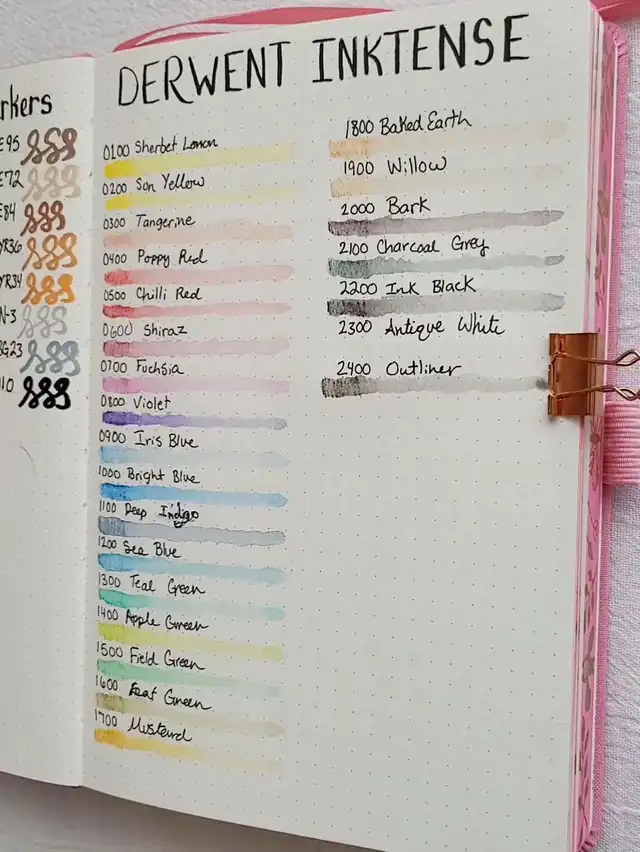 rkers
E95
E72
E84
YR36
YR34
N-3
BG23
110
DERWENT INKTENSE
0100 Sherbet Lemon
0200 Sun Yellow
0300 Tangerine
0400 Poppy Red
0500 Chilli Red
0600 Shiraz
0700 Fuchsia
0800 Violet
0900 Iris Blue
1000 Bright Blue
1100 Deep Indigo
1200 Sea Blue
1300 Teal Green
1400 Apple Green
1500 Field Green
1600 Leaf Green
1700 Mustard
1800 Baked Earth
1900 Willow
2000 Bark
2100 Charcoal Grey
2200 Ink Black
2300 Antique White
2400 Outliner